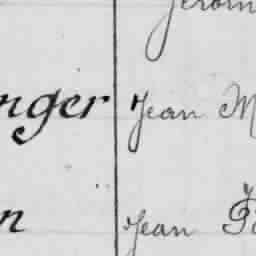 Jerom
nger Jean M
n Jean